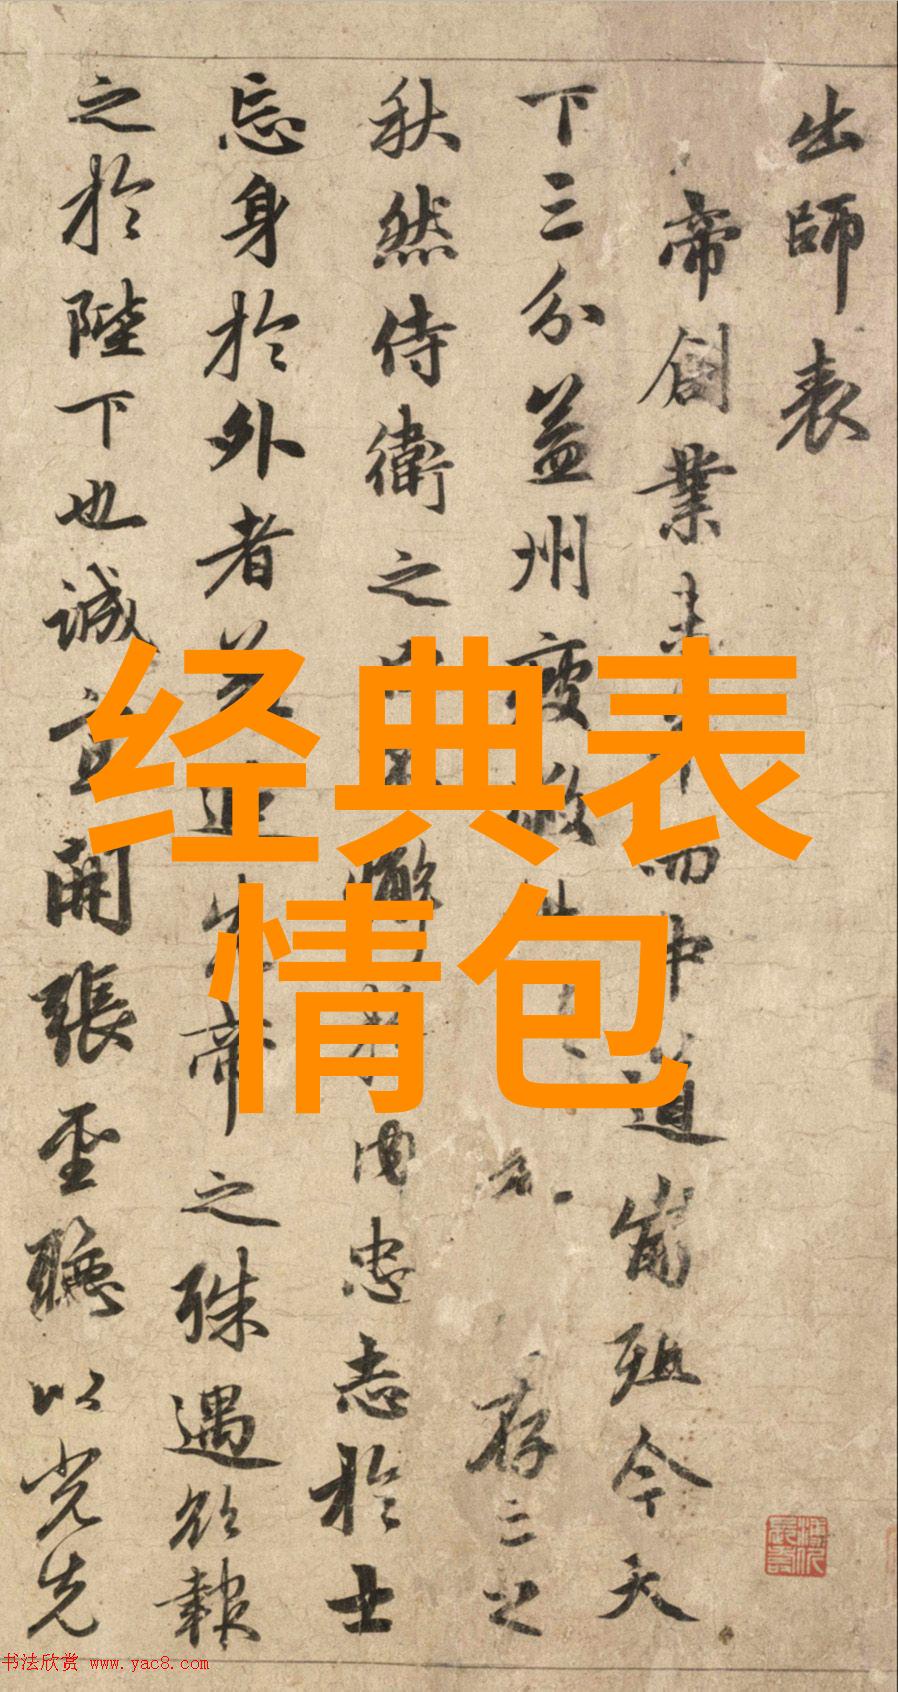 出師表
帝創業未而中道崩殂今天
下三分益州疲敝存亡之
秋然侍衛之臣不懈於内忠志於士
忘身於外者蓋追先帝之殊遇欲報
之於陛下也誠宜開張聖聽以光先
经典表
情包
书法欣赏 www.yac8.com